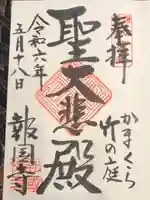 奉拝
かまくら
竹の庭
聖大悲殿
令和六年
五月十八日
報国寺